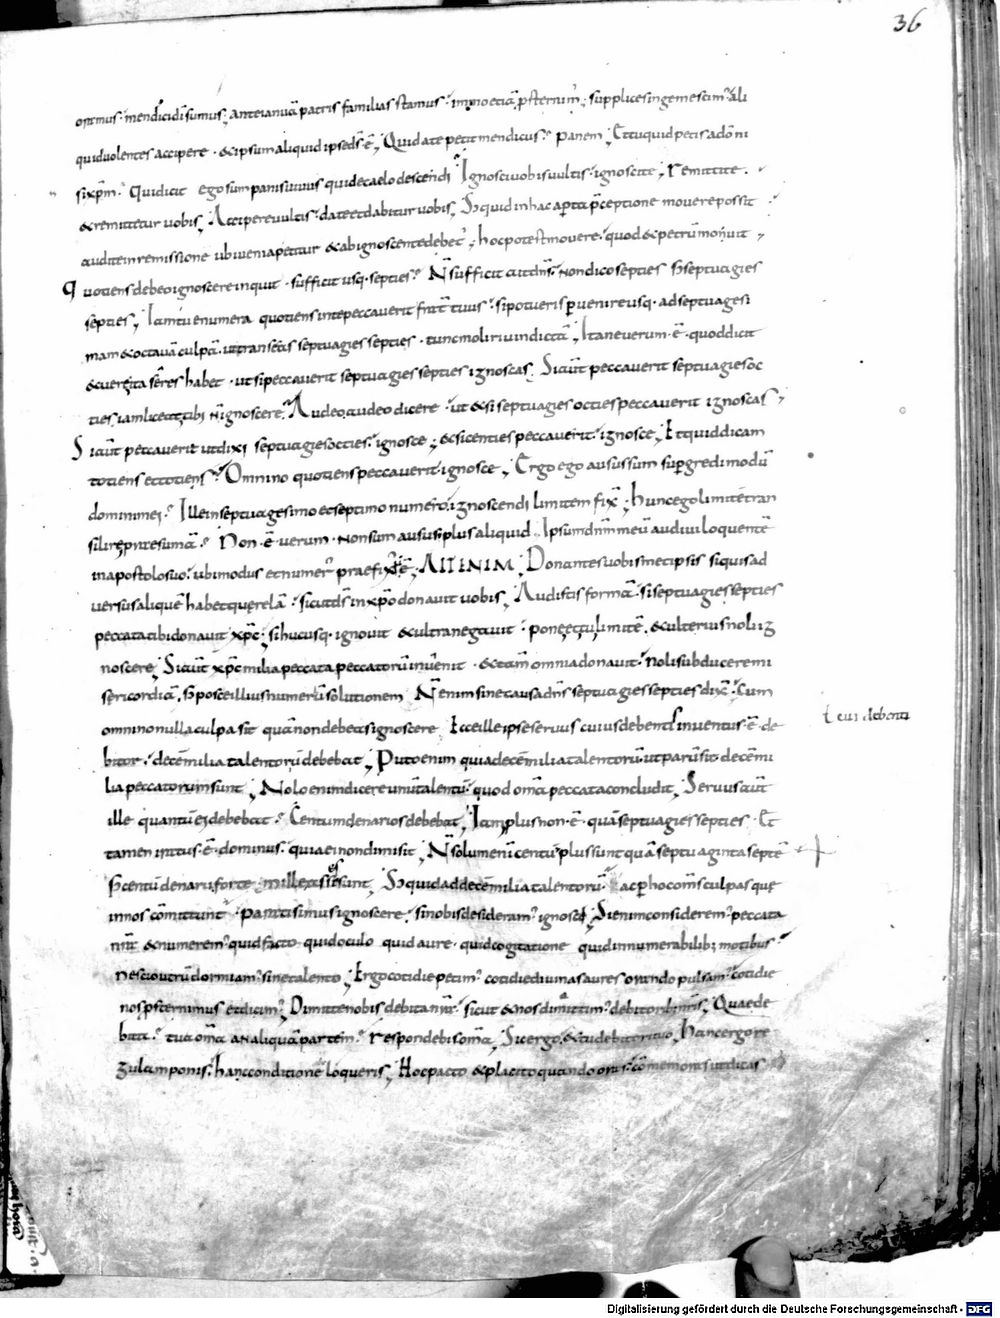 36
oramus mendici dī sumus; anteianuā patris familias stamus; immo etiā psternim̄; supplices ingemescim̄ ali
quid volentes accipere · & ipsum aliquid ipse ds̄ ē; Quid a te petit mendicus? Panem; Et tu quid petis a dōni
si xpm̄? qui dicit ego sum panis vivus qui de caelo descendi Ignosci vobis vultis · ignoscite; remittite ·
& remittetur vobis; Accipere vultis · date et dabitur vobis; S; quid in hac apta pceptione movere possit
audite in remissione ubi venia petitur & ab ignoscente debet̄; hoc potest movere · quod & petrū movit;
quotiens debeo ignoscere inquit · sufficit usq· septies? N̄ sufficit ait dn̄s · non dico septies s; septuagies
septies; Iam tu enumera quotiens in te peccaverit frāt tuus? si potueris pvenire usq· ad septuagesi
mam & octavā culpā · ut transeas septuagies septies · tunc moliri vindictā; Itane verum · ē · quod dicit
& certe ita se res habet · ut si peccaverit septuagies septies ignoscas; Si aut̄ peccaverit septuagies oc
ties iam liceat tibi n̄ ignoscere; Audeo audeo dicere · ut & si septuagies octies peccaverit ignoscas;
Si aut̄ peccaverit ut dixi septuagies octies · ignosce; & si centies peccaverit · ignosce; Et quid dicam
totiens et totiens? Omnino quotiens peccaverit · ignosce; Ergo ego ausus sum supgredi modū
domini mei? Ille in septuagesimo et septimo numero ignoscendi limitem fixit; hunc ego limitē tran
silire praesumā? Non · ē verum · non sum ausus plus aliquid Ipsum dn̄m meū audivi loquentē
in apostolo suo · ubi modus et numer̄ praefixus n̄ ē · AIT ENIM; Donantes vobismetipsis si quis ad
versus aliquē habet querelā · sicut ds̄ in xpō donavit vobis; Audistis formā · si septuagies septies
peccata tibi donavit xpc̄ · si hucusq· ignovit & ultra negavit · pone et tu limitē · & ulterius noli ig
noscere; Si aut̄ xpc̄ milia peccata peccatorū invenit · & tam̄ omnia donavit · noli subducere mi
sericordiā · s; posce illius numeri solutionem N̄ enim sine causa dn̄s septuagies septies dix̄ · Cum
omnino nulla culpa sit quā non debeas ignoscere Ecce ille ipse servus cuius debent̄ inventus · ē · de
cui deberent̄
bitor · decē milia talentorū debebat; Puto enim quia decē milia talentorū · ut parū sit · decē mi
lia peccatorum sunt; Nolo enim dicere unū talentū quod om̄a peccata concludit; Servus aut̄
ille quantū ei debebat? Centum denarios debebat; Iam plus non · ē · quā septuagies septies · Et
tamen iratus · ē · dominus · quia ei non dimisit; N̄ solum enī centū plus sunt quā septuaginta septē
s; centū denarii forte mille asses sunt; S; quid ad decē milia talentorū · ac p hoc om̄s culpas que
in nos cōmittunt̄ parati simus ignoscere · si nobis desideram̄ ignosci; Si enim considerem̄ peccata
nr̄a & numerem̄ quid facto quid oculo quid aure · quid cogitatione quid innumerabilib; motibus ·
nescio utrū dormiam̄ sine talento; Ergo cotidie petim̄ cotidie divinas aures orando pulsam̄ cotidie
nos psternimus et dicim̄; Dimitte nobis debita nr̄a · sicut & nos dimittim̄ debitorib; nr̄is; Quae de
bita? tua om̄a an aliquā partem? respondebis om̄a; Sic ergo & tu debitori tuo; hanc ergo re
gulam ponis · hanc conditione loqueris; Hoc pacto & placito quando oras · cōmemoras ut dicas